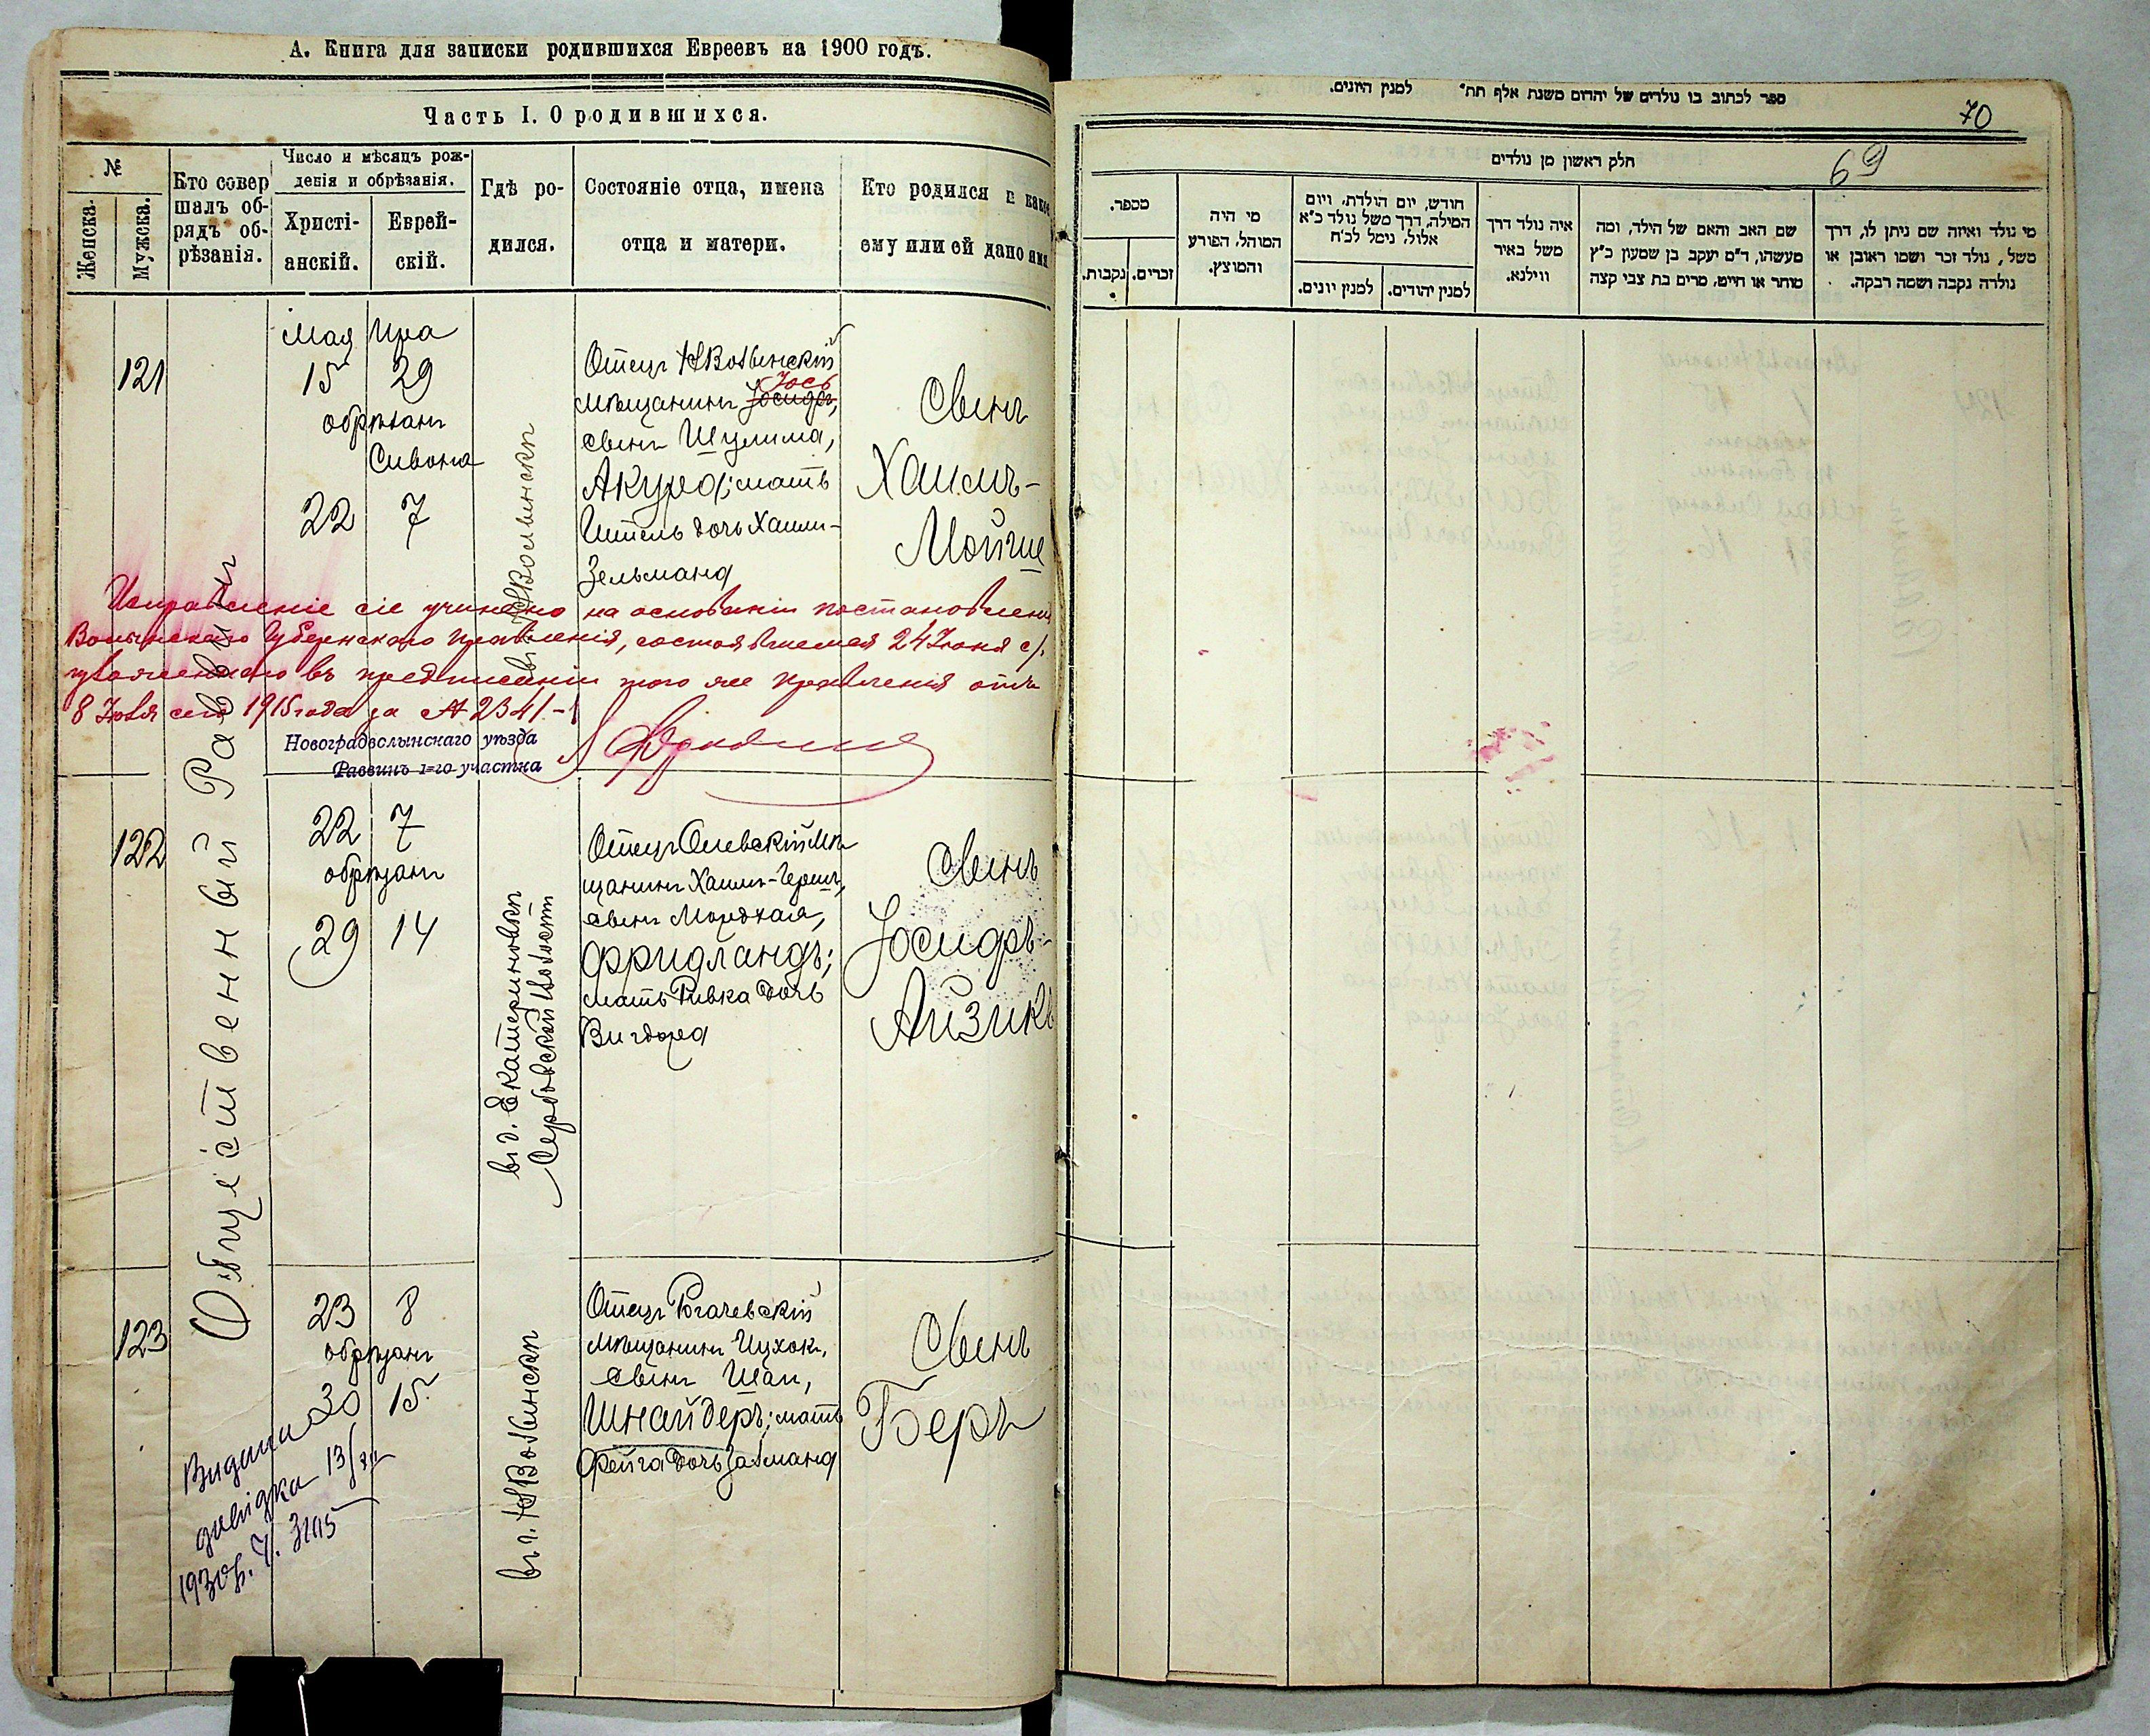 А. Книга для записки родившихся Евреевъ на 1900 годъ.
Часть I. О родившихся.
№
Женска.
Мужска.
Кто совер
шалъ об-
рядъ об-
рѣзанія.
Число и мѣсяцъ рож-
денія и обрѣзанія.
Христі-
анскій.
Еврей-
скій.
Гдѣ ро-
дился.
Состояніе отца, имена
отца и матери.
Кто родился и какое
ему или ей дано имя
Общественный Раввинъ
121
Мая Ира
15 29
обрѣзанъ
Сивона
22 7
въ г. НВолынскѣ
Отецъ НВолынскій
мѣщанинъ Іосифъ, Іось
сынъ Шулима,
Акура; мать
Ципель дочь Хаим-
Зельмана
Сынъ
Хаимъ-
Мойше
Исправленіе сіе учинено на основаніи постановленія
Волынскаго Губернскаго Правленія, состоявшемся 24 Іюня с/г.
изложеннаго въ предписаніи того же Правленія отъ
8 Іюля сего 1915 года за № 2341.-
Новоградволынскаго уѣзда
Раввинъ 1=го участка
122
22 7
обрѣзанъ
29 14
въ д. Екатериновкѣ
Сербовской Волости
Отецъ Олевскій мѣ
щанинъ Хаим-Герш,
сынъ Мордхая,
Фридландъ;
мать Ривка дочь
Вигдора
Сынъ
Іосифъ-
Айзикъ
123
23 8
обрѣзанъ
30 15
въ г. НВолынскѣ
Отецъ Рогачевскій
мѣщанинъ Ицхокъ,
сынъ Шаи,
Шнайдеръ; мать
Фейга дочь Залмана
Сынъ
Беръ
Видана
довідка 13/
1930р. Ч. 3195
ספר לכתוב בו נולדים של יהדום משנת אלף תת״ למנין היונים.
70
חלק ראשון מן נולדים
69
מספר.
זכרים.
נקבות.
מי היה
המוהל, הפורע
והמוצץ.
חודש, יום הולדת, ויום
המילה, דרך משל נולד כ״א
אלול, נימל לכ״ח
למנין יהודים.
למנין יונים.
איה נולד דרך
משל באיר
ווילנא.
שם האב והאם של הילד, ומה
מעשהו, ד״מ יעקב בן שמעון כ״ץ
סוחר או חייט, מרים בת צבי קצה
מי נולד ואיזה שם ניתן לו, דרך
משל, נולד זכר ושמו ראובן או
נולדה נקבה ושמה רבקה.